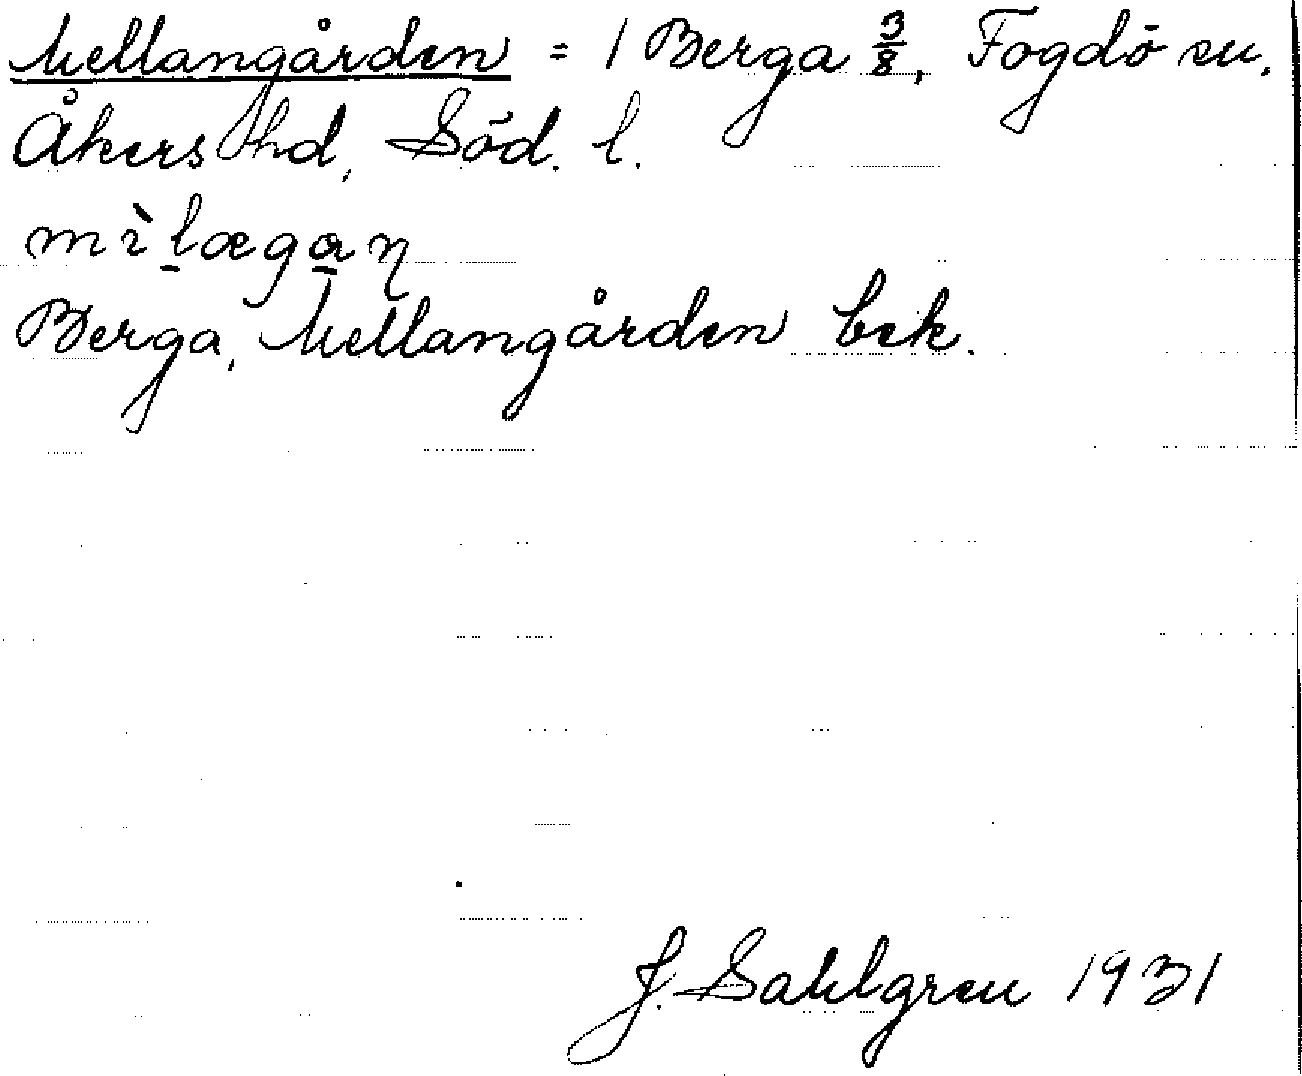 Mellangården = 1 Berga 3/8, Fogdö sn,
Åkers hd, Söd. l.
mı̀l̠æga̠ɳ
Berga, Mellangården bek.
J. Sahlgren 1931